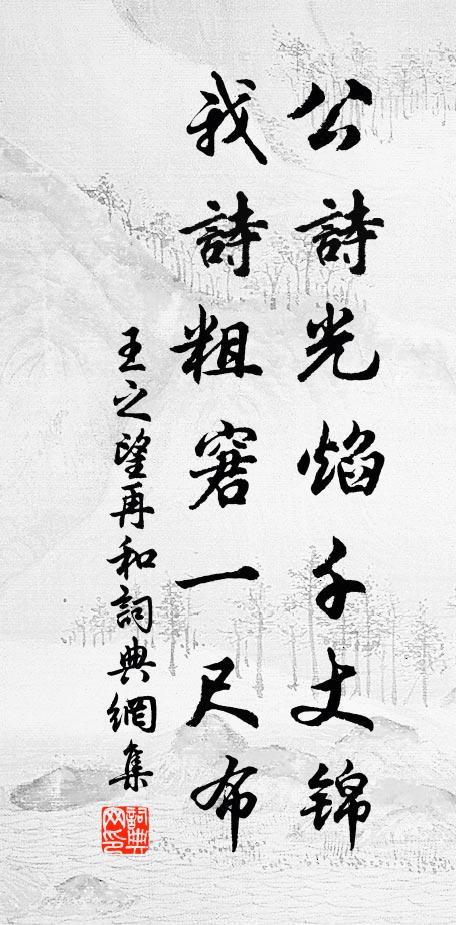 公詩光焰千丈錦
我詩粗窘一尺布
王之望再和詞典網集
詞典網印